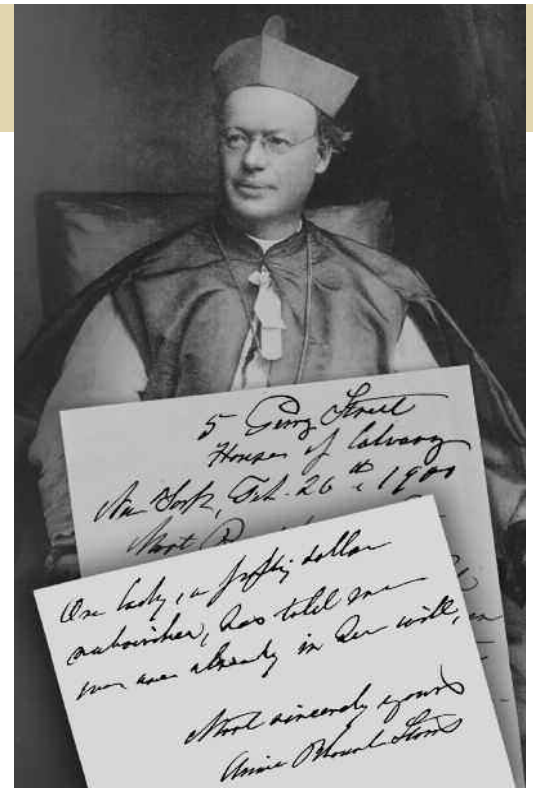 5 Perry Street
House of Calvary
New York, Feb. 26th 1900
Most
One lady, a fifty dollar
subscriber, has told me
you are already in her will,
Most sincerely yours
Annie Blount Storrs